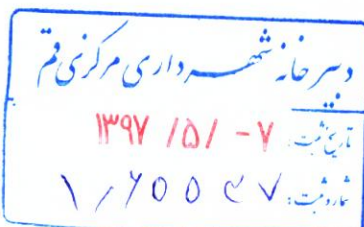 دبیرخانه شهرداری مرکزی قم
تاریخ ثبت: ۱۳۹۷ /۵/ -۷
شماره ثبت: